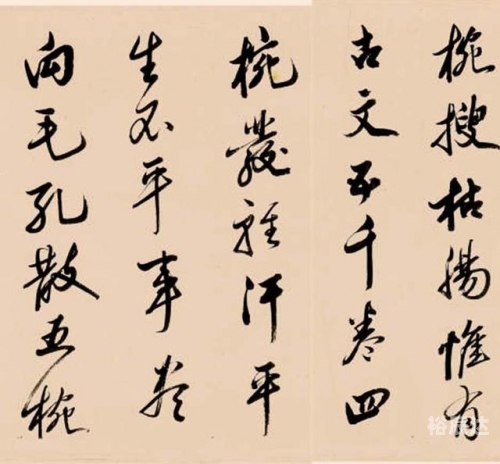 椀搜枯腸惟有
古文五千卷四
椀發輕汗平
生不平事盡
向毛孔散五椀